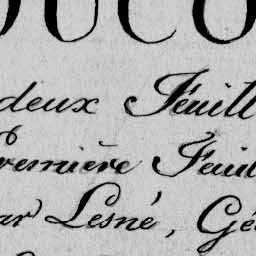 OUCO
deux Feuill
remière Feuil
ar Lesné, Gé